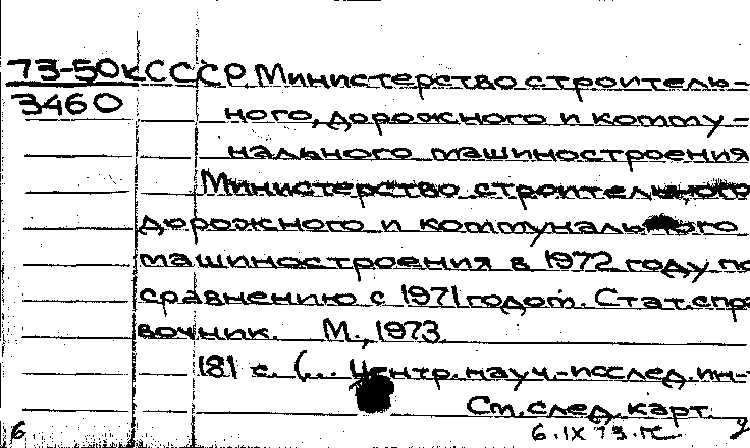 73-50к СССР. Министерство строитель-
3460 ного, дорожного и комму-
нального машиностроения
Министерство строительного
дорожного и коммунального
машиностроения в 1972 году по
сравнению с 1971 годом. Стат. спра
вочник. М., 1973
181 с. (... Центр. науч.-исслед. ин-т
См. след. карт.
6 6.IX 73